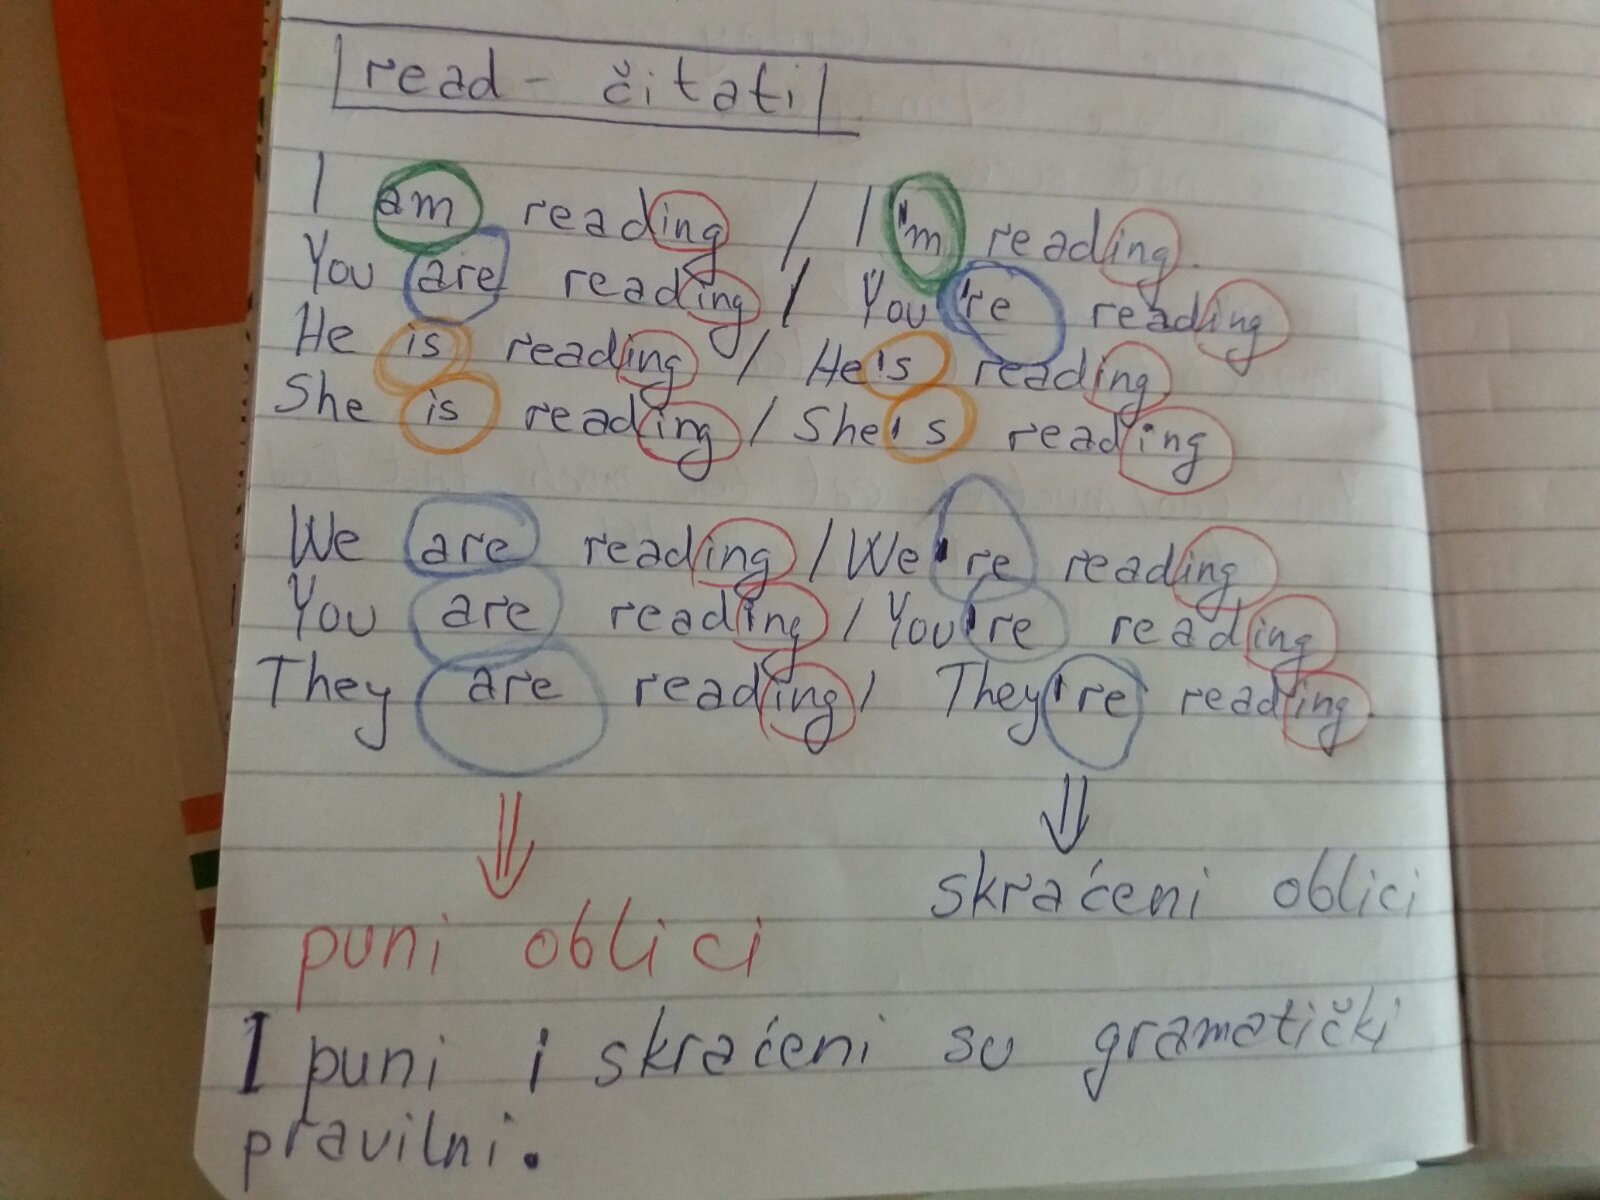 read - čitati
I am reading / I'm reading.
You are reading / You're reading
He is reading / He's reading
She is reading / She's reading
We are reading / We're reading
You are reading / You're reading
They are reading / They're reading.
skraćeni oblici
puni oblici
I puni i skraćeni su gramatički
pravilni.